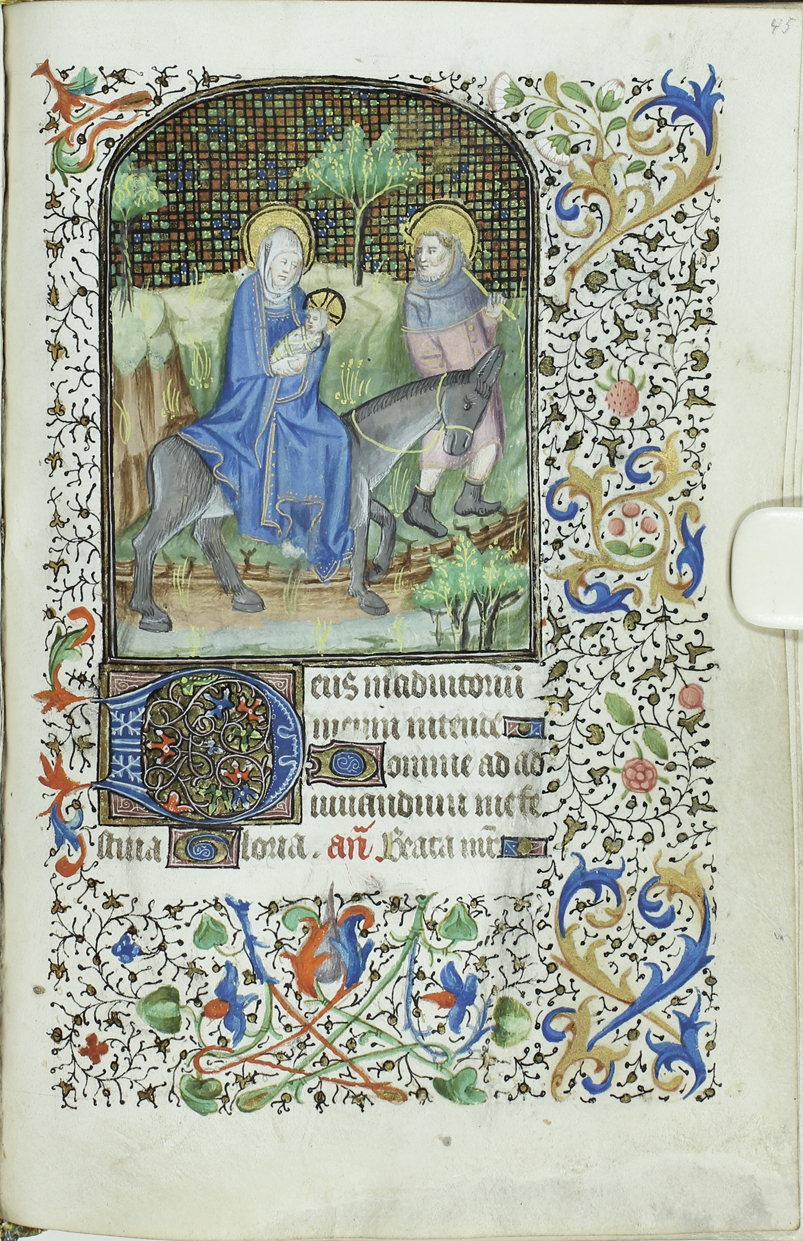 45
Deus in adiutoriu
meum intende
Domine ad ad
iuuandum me fe
stina Gloria . an̄ Beata m̄t